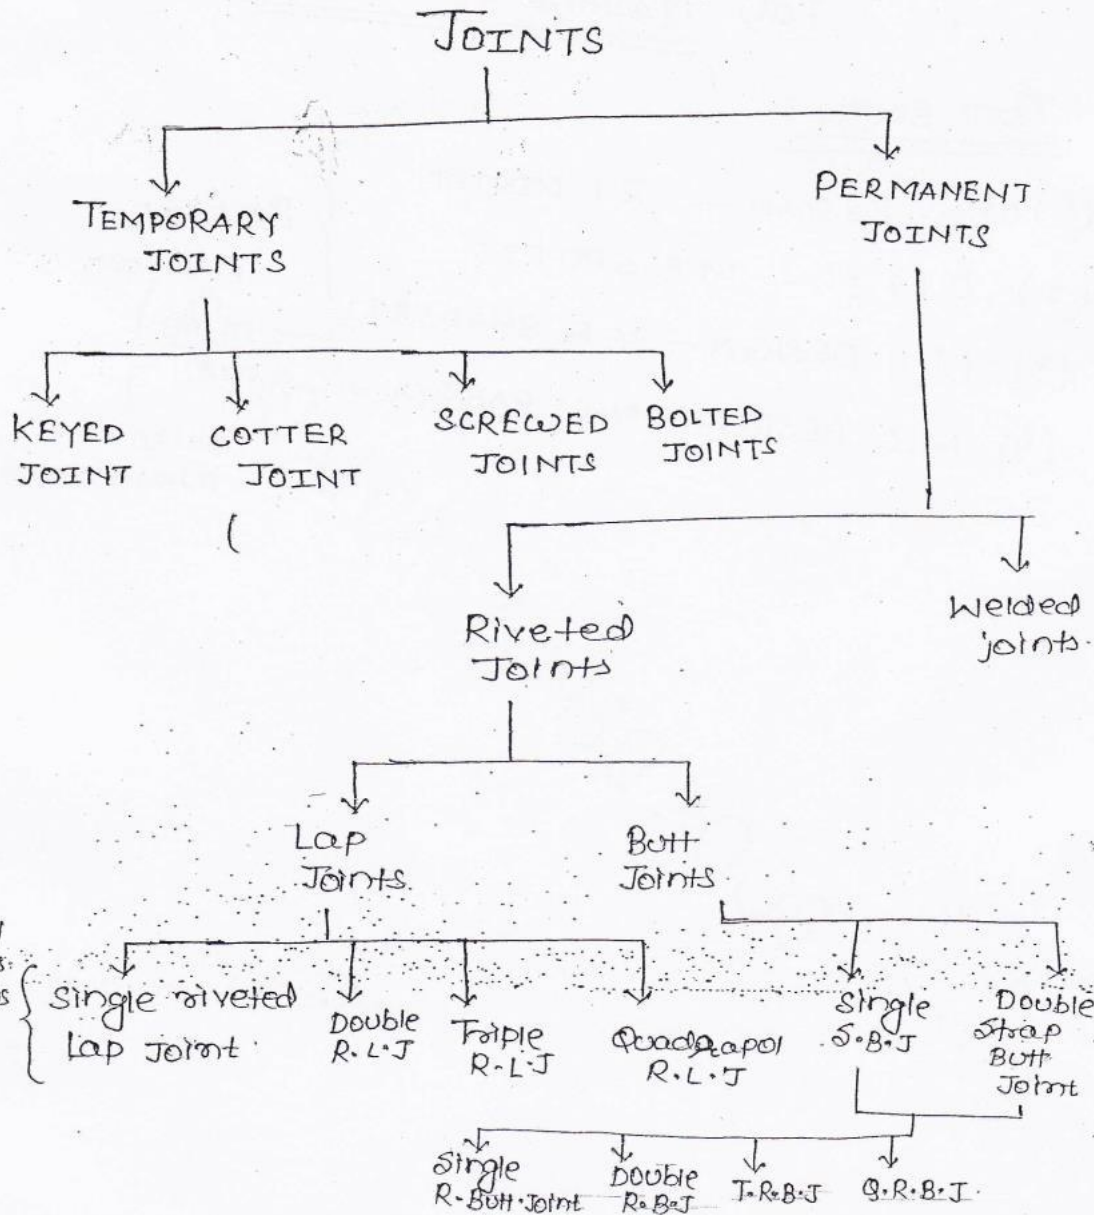 JOINTS
TEMPORARY
JOINTS
PERMANENT
JOINTS
KEYED
JOINT
COTTER
JOINT
SCREWED
JOINTS
BOLTED
JOINTS
(
Riveted
Joints
Welded
joints.
Lap
Joints.
Butt
Joints.
Single riveted
Lap Joint.
Double
R.L.J
Triple
R.L.J
R.L.J
Single
S.B.J
Double
Strap
Butt
Joint
Single
R.Butt.Joint
Double
R.B.J
T.R.B.J
Q.R.B.J.